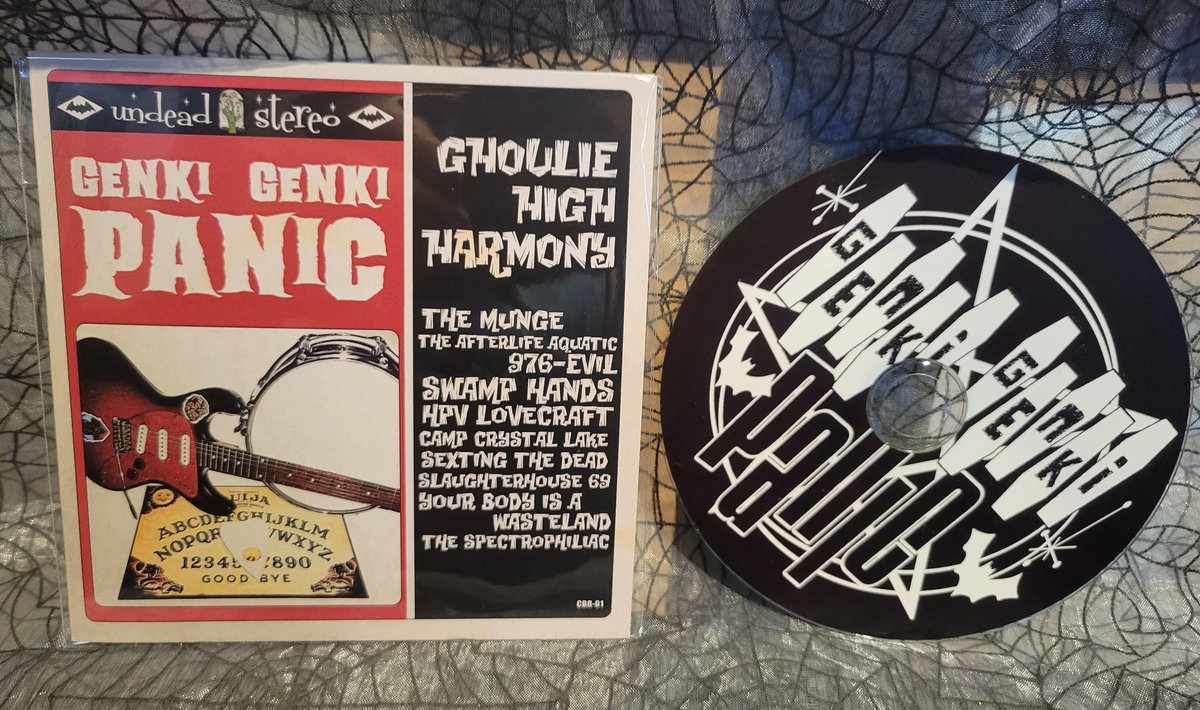 undead stereo
GENKI GENKI
PANIC
GHOULIE
HIGH
HARMONY
THE MUNGE
THE AFTERLIFE AQUATIC
976-EVIL
SWAMP HANDS
HPV LOVECRAFT
CAMP CRYSTAL LAKE
SEXTING THE DEAD
SLAUGHTERHOUSE 69
YOUR BODY IS A
WASTELAND
THE SPECTROPHILIAC
CBR-01
OUIJA
ABCDEFGHIJKLM
NOPQR WXYZ
12345 7890
GOOD BYE
GENKI GENKI
GENKI GENKI
PANIC